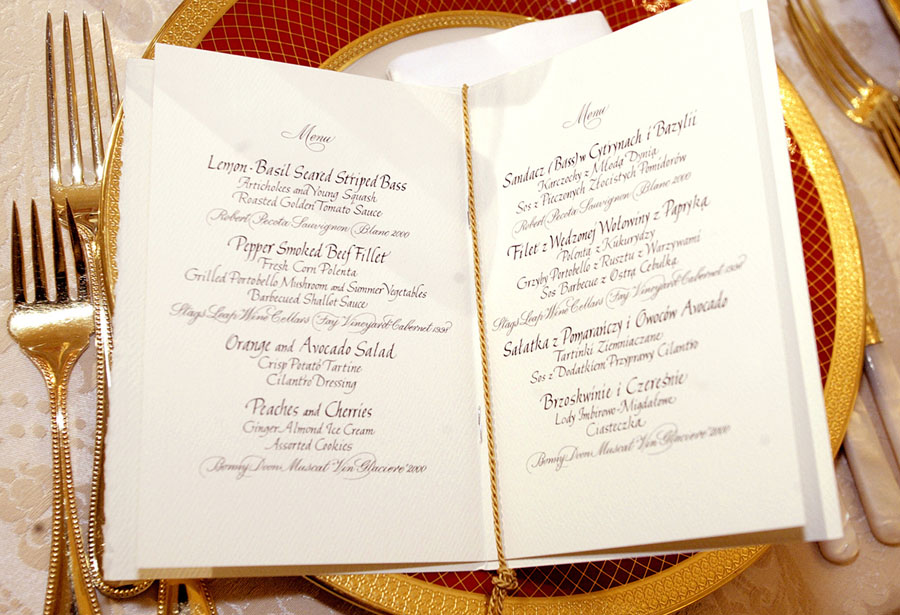 Menu
Lemon-Basil Seared Striped Bass
Artichokes and Young Squash
Roasted Golden Tomato Sauce
Robert Pecota Sauvignon Blanc 2000
Pepper Smoked Beef Fillet
Fresh Corn Polenta
Grilled Portobello Mushroom and Summer Vegetables
Barbecued Shallot Sauce
Stags Leap Wine Cellars "Fay Vineyard" Cabernet 1998
Orange and Avocado Salad
Crisp Potato Tartine
Cilantro Dressing
Peaches and Cherries
Ginger Almond Ice Cream
Assorted Cookies
Bonny Doon Muscat "Vin Glaciere" 2000
Menu
Sandacz (Bass) w Cytrynach i Bazylii
Karczochy z Młodą Dynią
Sos z Pieczonych Złocistych Pomidorów
Robert Pecota Sauvignon Blanc 2000
Filet z Wędzonej Wołowiny z Papryką
Polenta z Kukurydzy
Grzyby Portobello z Rusztu z Warzywami
Sos Barbecue z Ostrą Cebulką
Stags Leap Wine Cellars "Fay Vineyard" Cabernet 1998
Sałatka z Pomarańczy i Owoców Avocado
Tartinki Ziemniaczane
Sos z Dodatkiem Przyprawy Cilantro
Brzoskwinie i Czereśnie
Lody Imbirowo-Migdałowe
Ciasteczka
Bonny Doon Muscat "Vin Glaciere" 2000